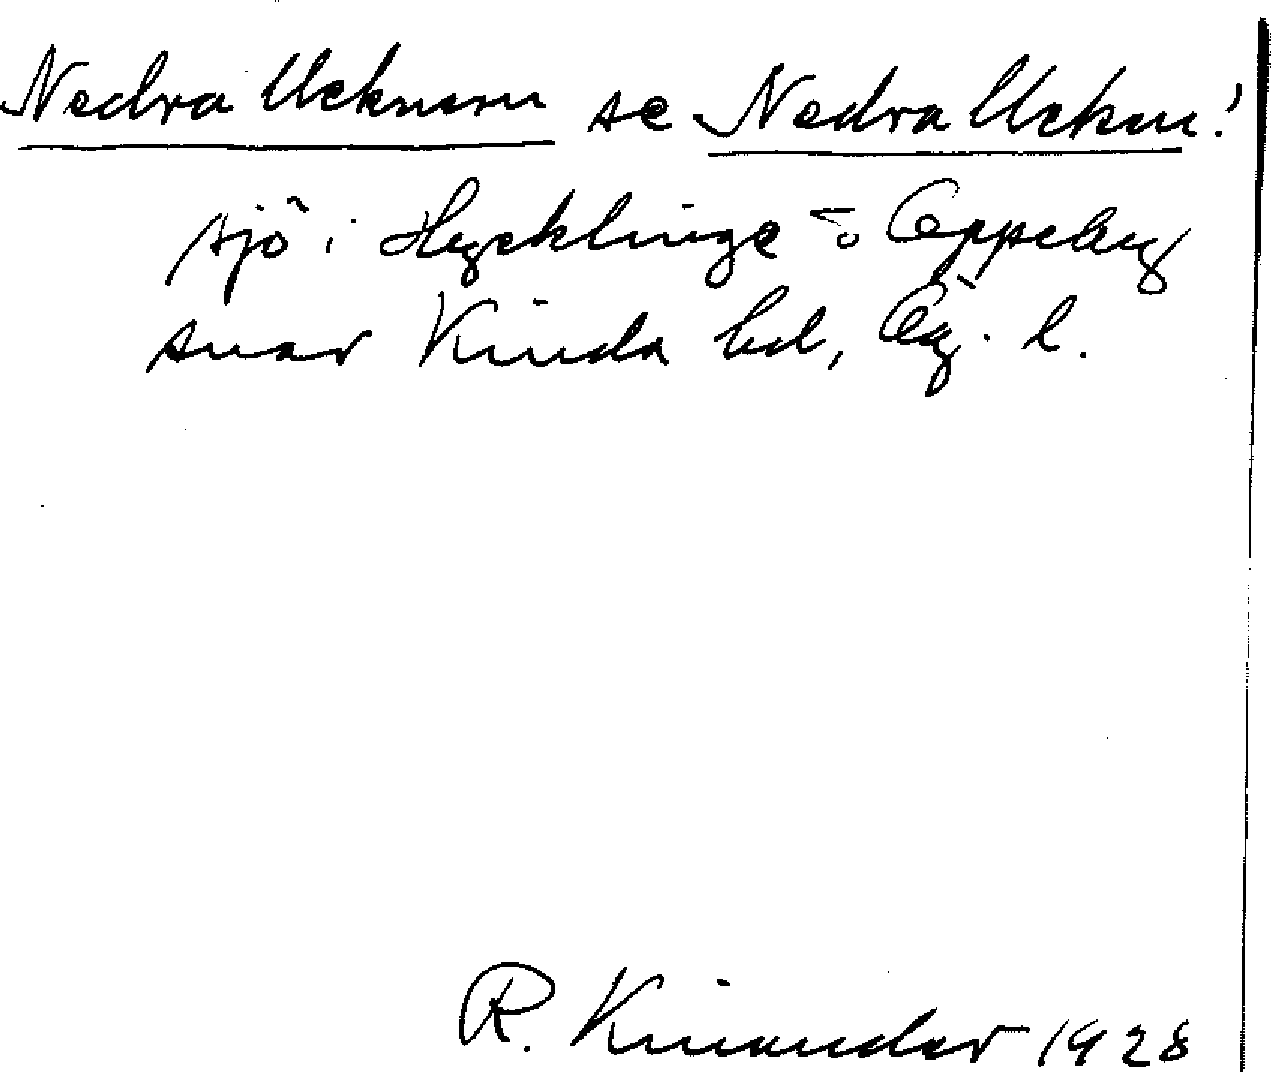 Nedra se Nedra
sjö i Hycklinge o Oppeby
snar Kinda hd, Ög. l.
R. Kinander 1928